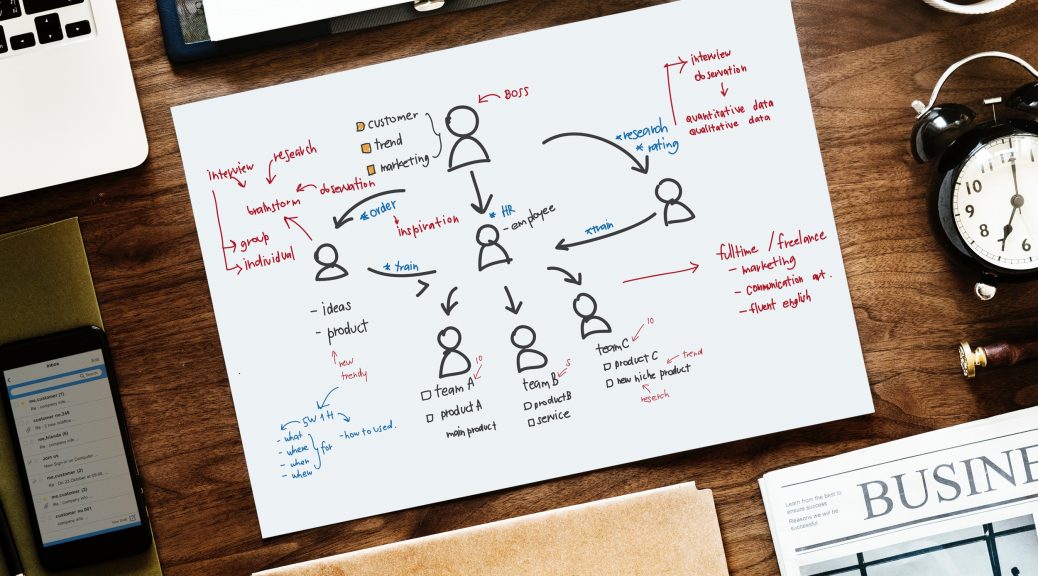 BOSS
customer
trend
marketing
interview
observation
quantitative data
qualitative data
*research
* rating
interview
research
brainstorm
obsevation
group
individual
*order
inspiration
* HR
- employee
*train
* train
- ideas
- product
new
trendy
5W 1H
- what
- where
- when
for
- how to used.
team A
10
product A
main product
team B
5
product B
service
team C
10
product C
trend
new niche product
research
fulltime / freelance
- marketing
- communication
- fluent english
Inbox
Edit
Search
me,customer (1)
Re : company info...
customer no.345
me,friends (6)
Re : company info...
Join us
me,customer (2)
me,customer (3)
Re : company info...
customer no.001
company info...
10
11
12
1
2
3
4
5
6
7
8
9
Learn from the best to
ensure success
Reasons we will be
successful
BUSINE